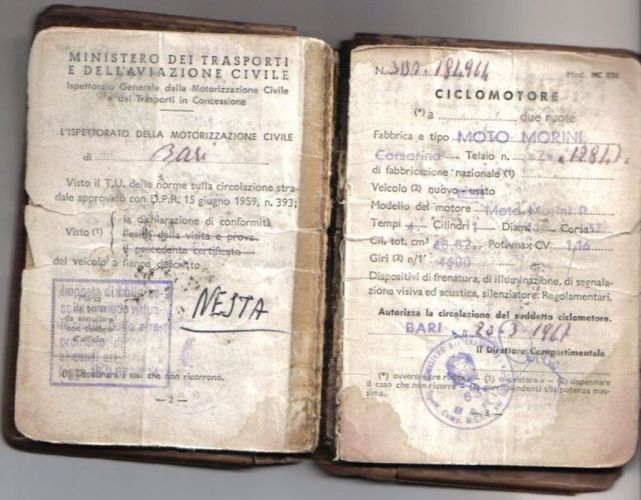 MINISTERO DEI TRASPORTI
E DELL'AVIAZIONE CIVILE
Ispettorato Generale della Motorizzazione Civile
e dei Trasporti in Concessione
L'ISPETTORATO DELLA MOTORIZZAZIONE CIVILE
di Bari
Visto il T.U. delle norme sulla circolazione stra-
dale approvato con D.P.R. 15 giugno 1959, n. 393;
la dichiarazione di conformità
Visto (1) l'esito della visita e prova
il precedente certificato
del veicolo a fianco descritto
NESTA
da annullare
con timbro
d'ufficio
che non ricorrono.
— 2 —
N. Mod. MC 808
CICLOMOTORE
(*) a due ruote
Fabbrica e tipo MOTO MORINI
Corsarino Telaio n.
di fabbricazione nazionale (1)
Veicolo (2) nuovo - usato
Modello del motore Moto Morini P
Tempi 4 Cilindri 1 Diam. Corsa 37
Cil. tot. cm³ Pot. max CV 1,16
Giri (3) n/1' 4600
Dispositivi di frenatura, di illuminazione, di segnala-
zione visiva ed acustica, silenziatore: Regolamentari.
Autorizza la circolazione del suddetto ciclomotore.
BARI 20-3-1967
Il Direttore Compartimentale
(*) ovvero «tre ruote» — (1) o «estera» — (2) depennare
il caso che non ricorre — (3) corrispondenti alla potenza mas-
sima.